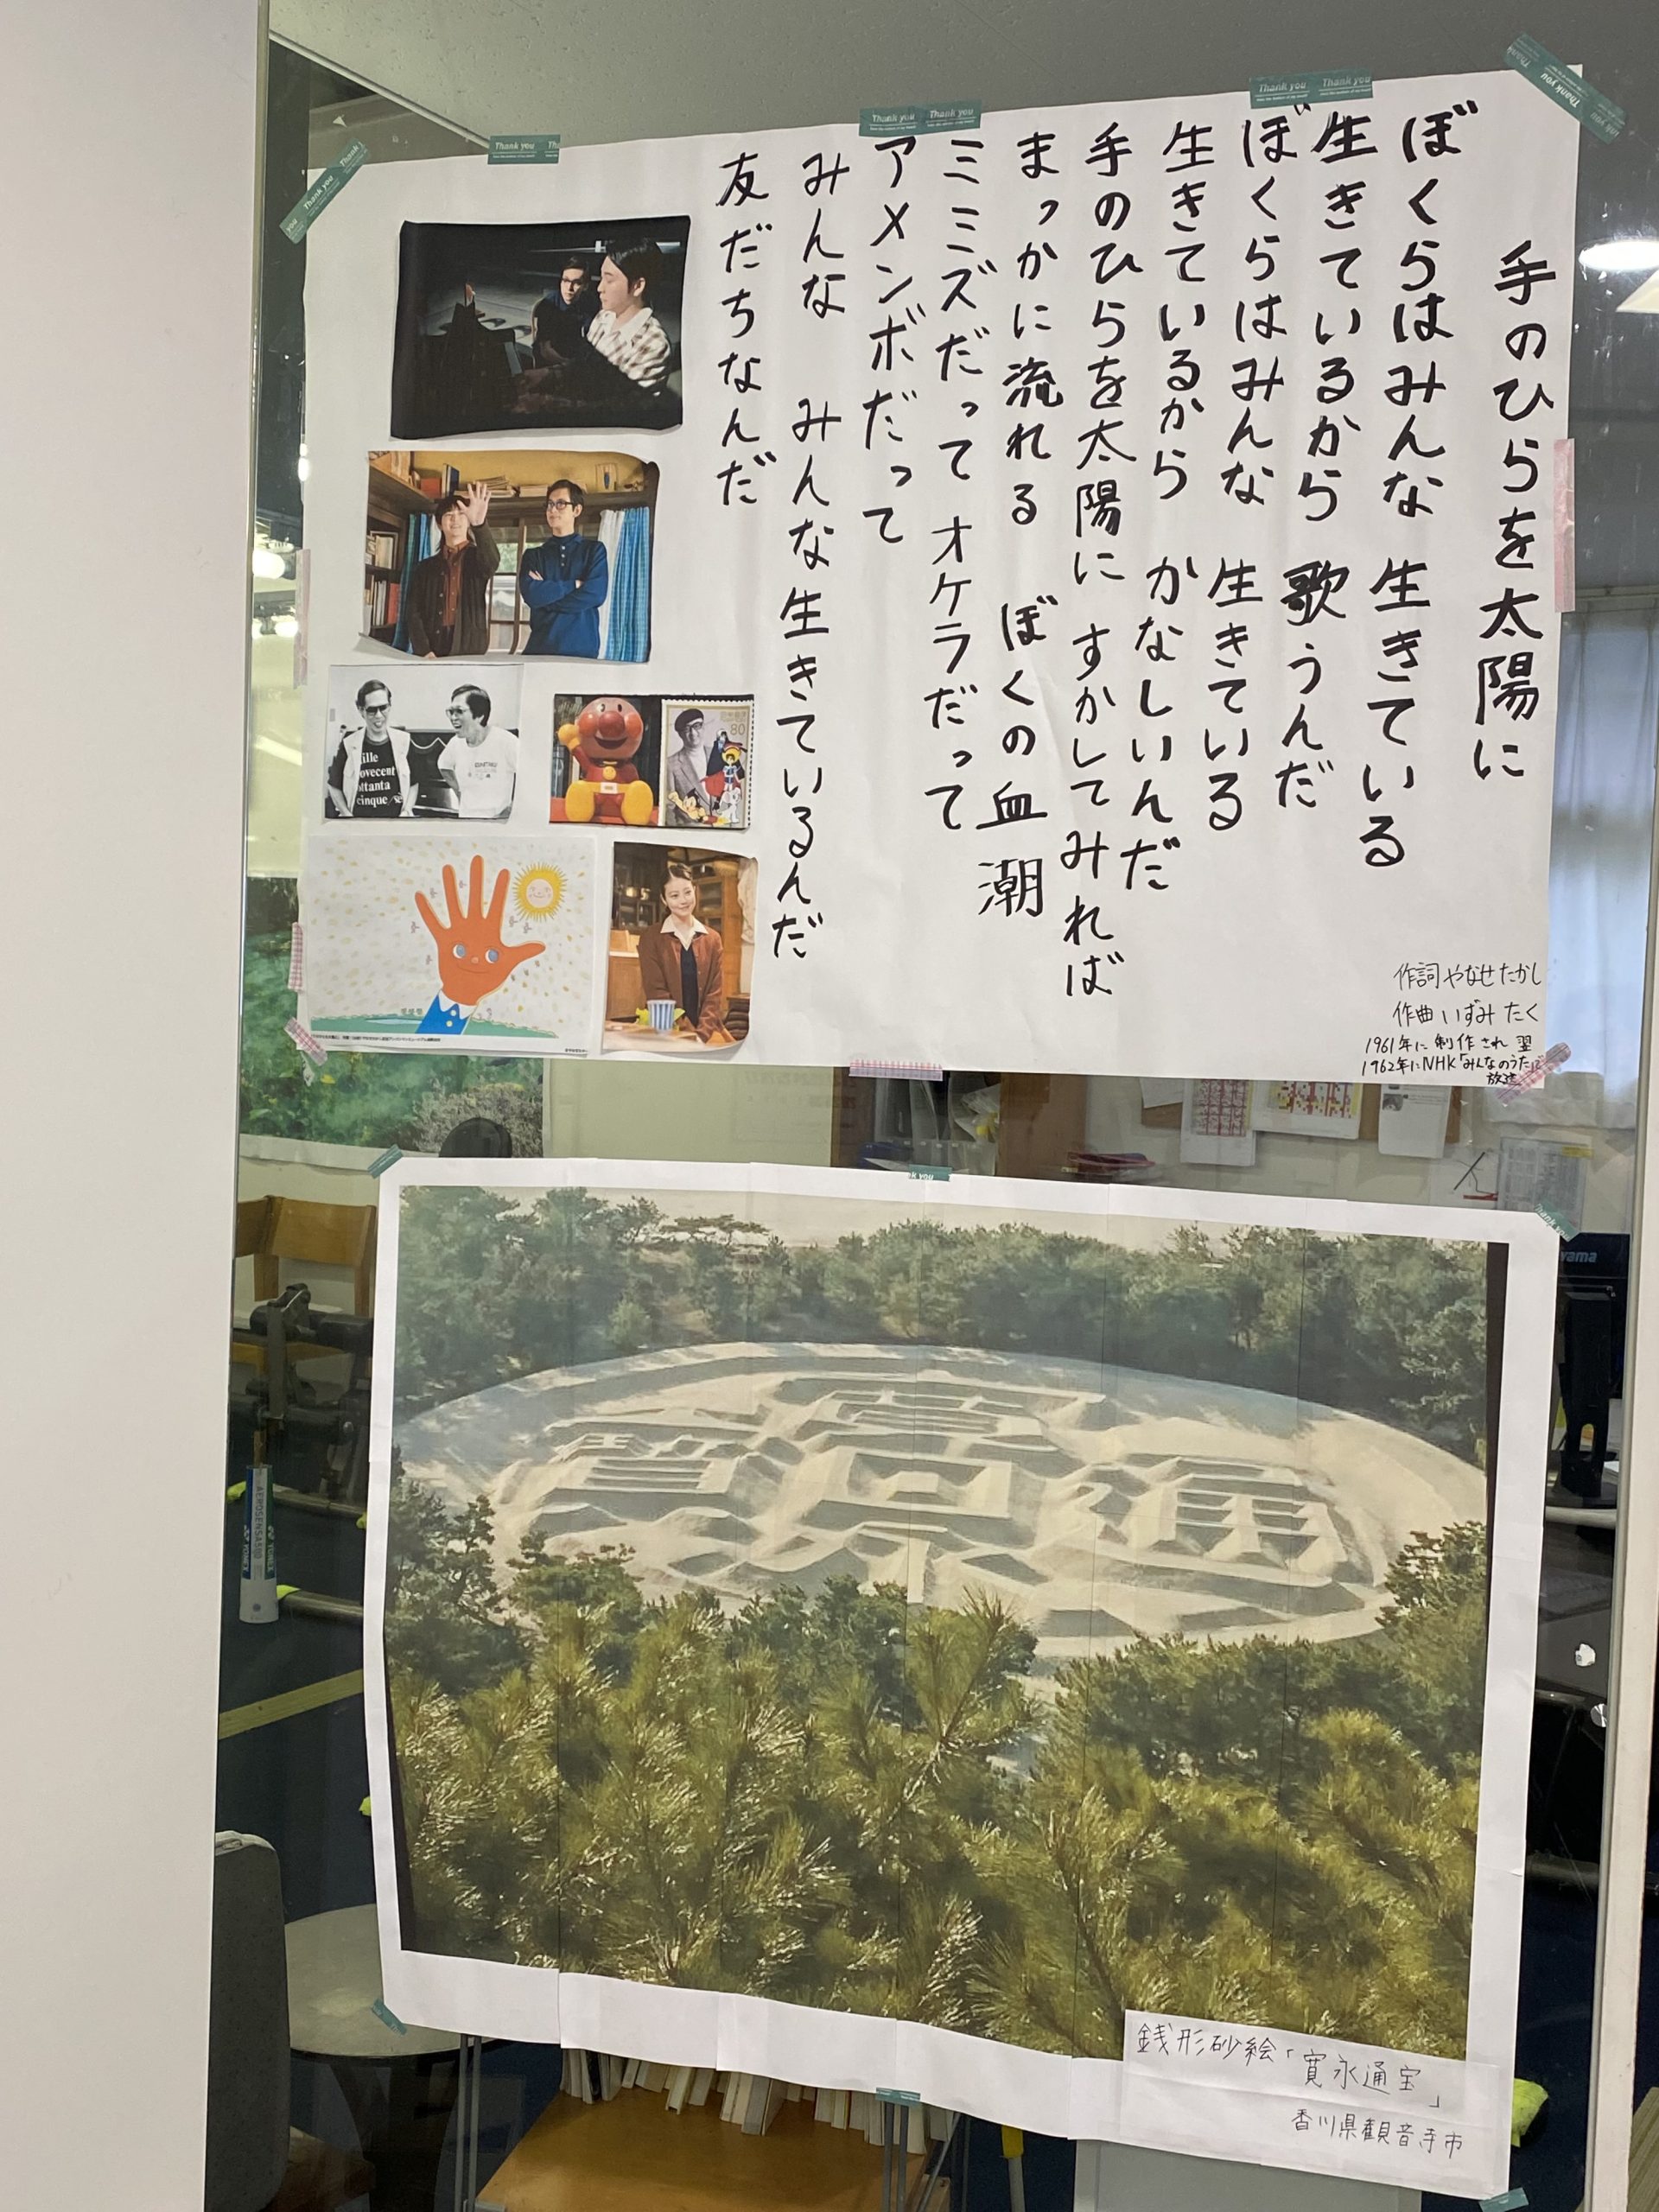 手のひらを太陽に
ぼくらはみんな 生きている
生きているから 歌うんだ
ぼくらはみんな 生きている
生きているから かなしいんだ
手のひらを太陽に すかしてみれば
まっかに流れる ぼくの血潮
ミミズだって オケラだって
アメンボだって
みんな みんな生きているんだ
友だちなんだ
作詞 やなせ たかし
作曲 いずみ たく
1961年に 制作され 翌
1962年にNHK「みんなのうた」で
放送
Thank you
Thank you
Thank you
Thank you
Thank you
Thank you
Thank you
ille
ovecent
ottanta
cinque/se
80
yama
AEROSENSA
YONEX
YONEX
銭形砂絵「寛永通宝」
香川県観音寺市